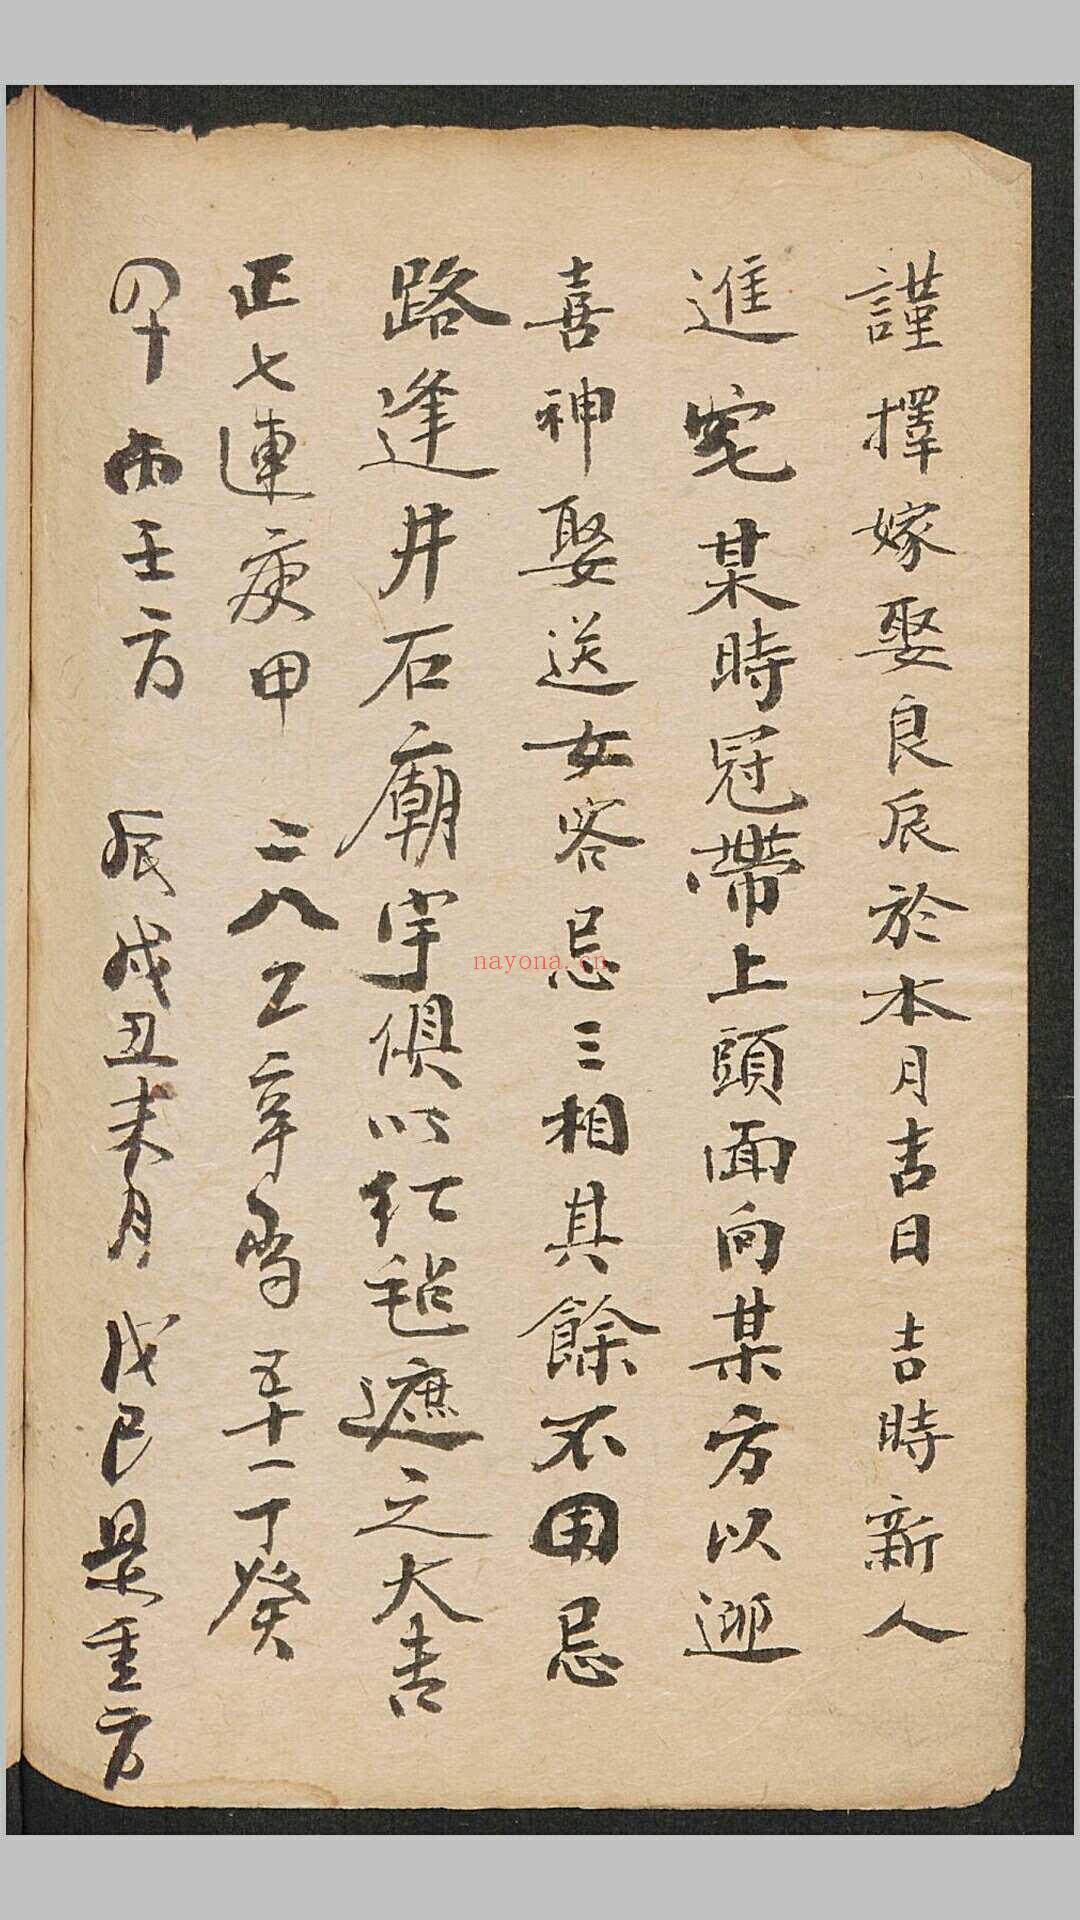 謹擇嫁娶良辰於本月吉日 吉時新人
進宅 某時冠帶上頭面向某方以迎
喜神娶送女客忌三相其餘不用忌
路逢井石廟宇俱以紅毡遮之大吉
正七連庚甲 二八乙辛當 五十一丁癸
四十丙壬方 辰戌丑未月 戊己是重方
nayona.cn